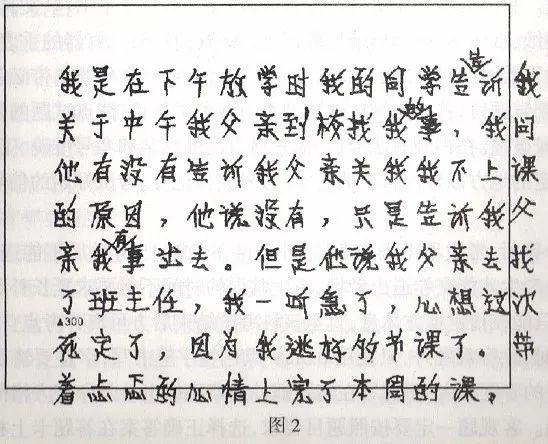 我是在下午放学时我的同学告诉我
关于中午我父亲到校找我的事，我问
他有没有告诉我父亲关我我不上课
的原因，他说没有，只是告诉我父
亲我有事出去。但是他说我父亲去找
了班主任，我一听急了，心想这次
▲300
死定了，因为我逃好多节课了。带
着忐忑的心情上完了本周的课，
图2